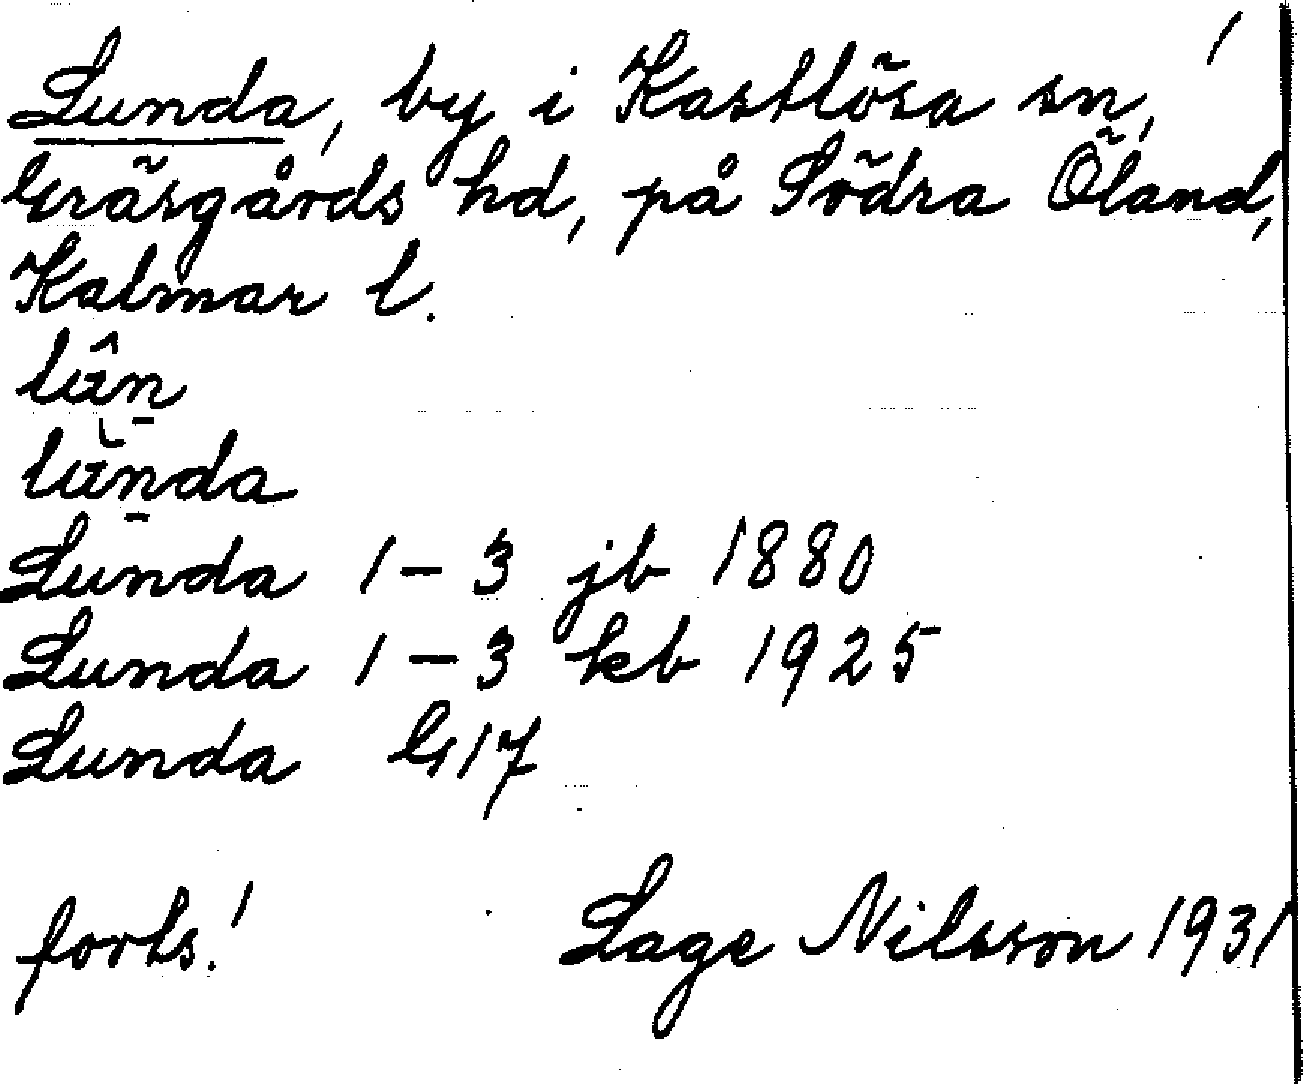 Lunda, by i Kastlösa sn,
Gräsgårds hd, på Södra Öland,
Kalmar l.
Lunda 1-3 jb 1880
Lunda 1-3 kb 1925
Lunda G 17
forts.!
Lage Nilsson 1931